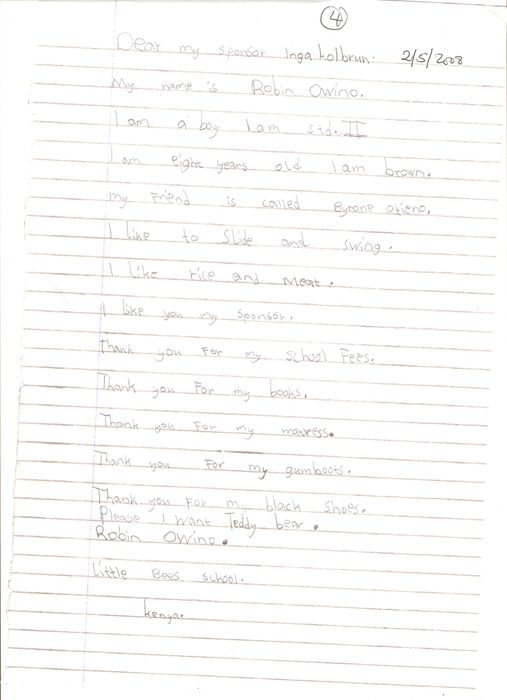 4
Dear my sponsor Inga holbrun: 2/5/2008
My name is Robin Owino.
I am a boy I am std. II
I am eight years old I am brown.
my Friend is called Byrone otieno.
I like to Slide and swing.
I like rice and Meat.
I like you my sponsor.
Thank you For my school Fees.
Thank you For my books.
Thank you For my matress.
Thank you For my gumboots.
Thank you For my black shoes.
Please I want Teddy bear.
Robin Owino.
Little Bees school.
kenya.